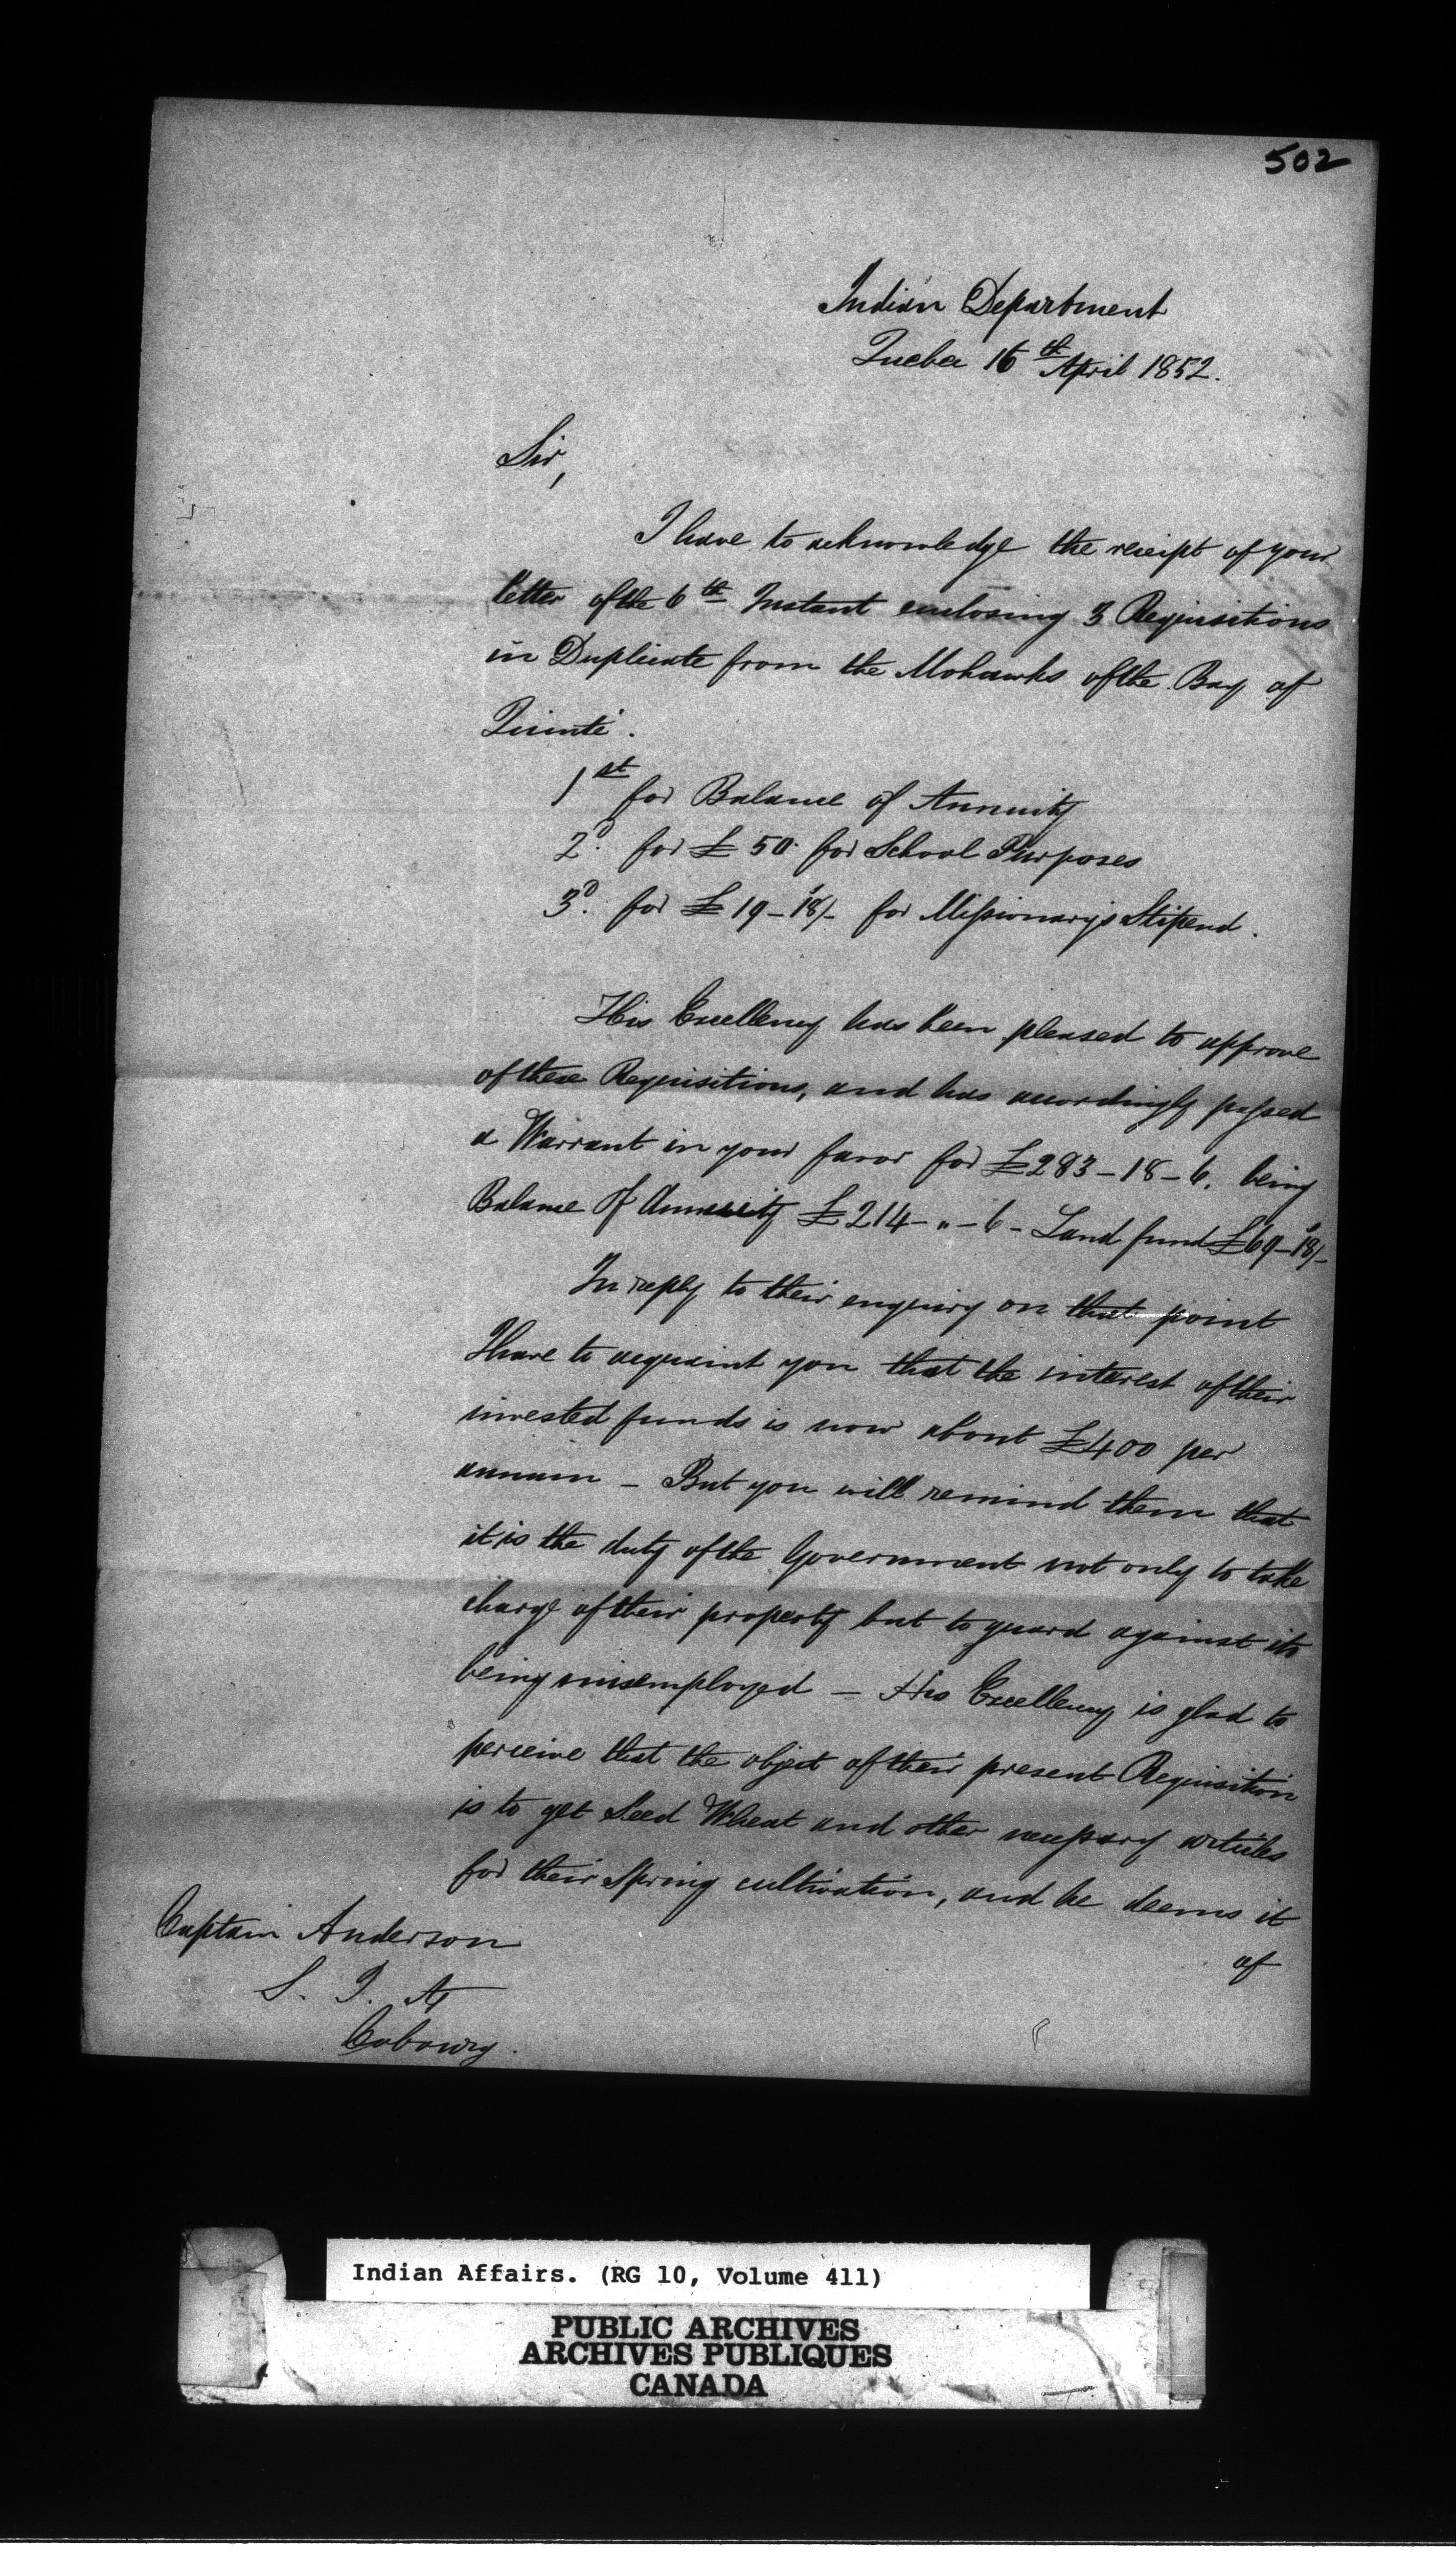 502
Indian Department
Quebec 16th April 1852.
Sir,
I have to acknowledge the receipt of your
letter of the 6th Instant enclosing 3 Requisitions
in Duplicate from the Mohawks of the Bay of
Quinté.
1st for Balance of Annuity
2d. for £50. for School Purposes
3d. for £19-18/- for Missionary's Stipend.
His Excellency has been pleased to approve
of these Requisitions, and has accordingly passed
a Warrant in your favor for £283-18-6. being
Balance of Annuity £214-"-6- Land fund £69-18/-
In reply to their enquiry on that point
I have to acquaint you that the interest of their
invested funds is now about £400 per
annum - But you will remind them that
it is the duty of the Government not only to take
charge of their property but to guard against its
being misemployed - His Excellency is glad to
perceive that the object of their present Requisition
is to get Seed Wheat and other necessary articles
for their Spring cultivation, and he deems it
of
Captain Anderson
S. I. A
Cobourg.
Indian Affairs. (RG 10, Volume 411)
PUBLIC ARCHIVES
ARCHIVES PUBLIQUES
CANADA